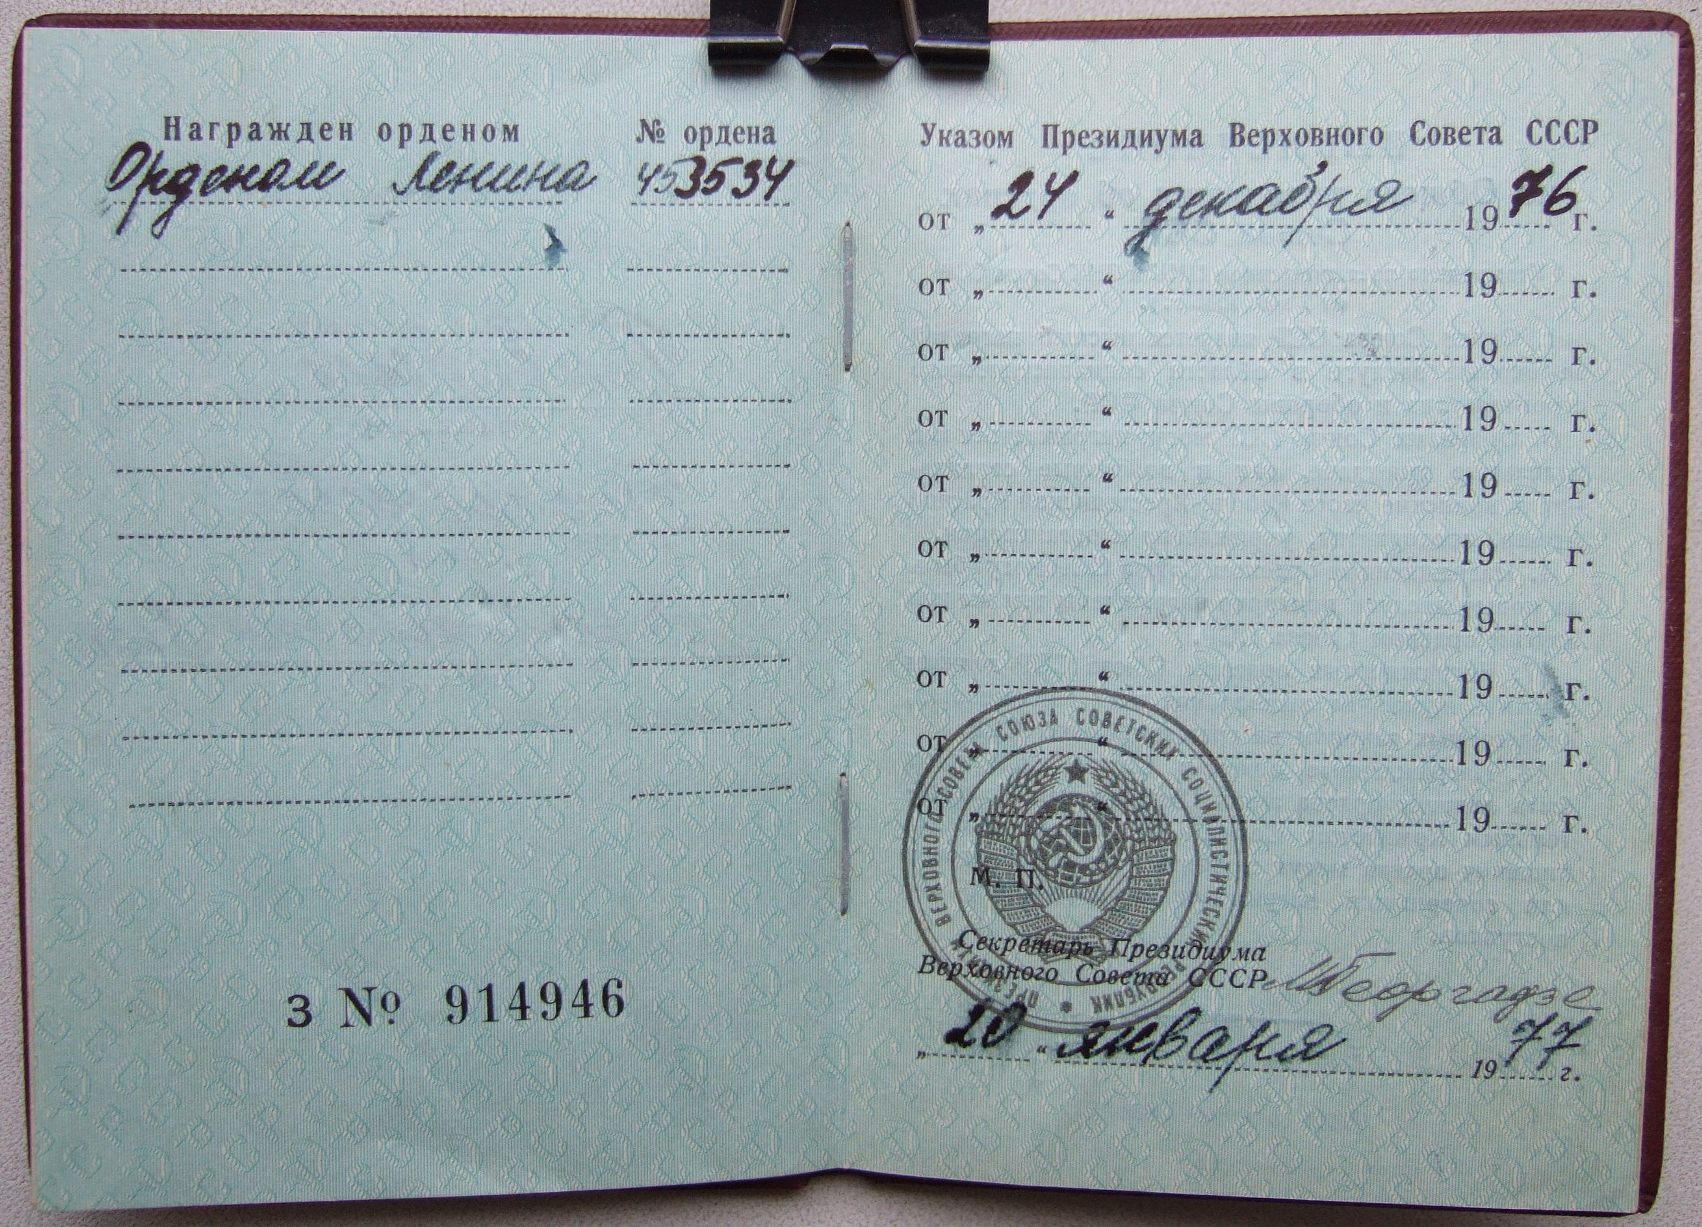 Награжден орденом № ордена
Орденом Ленина 453534
З № 914946
Указом Президиума Верховного Совета СССР
от „ 24 “ декабря 19 76 г.
от „ “ 19 г.
от „ “ 19 г.
от „ “ 19 г.
от „ “ 19 г.
от „ “ 19 г.
от „ “ 19 г.
от „ “ 19 г.
от „ “ 19 г.
от „ “ 19 г.
ПРЕЗИДИУМ ВЕРХОВНОГО СОВЕТА СОЮЗА СОВЕТСКИХ СОЦИАЛИСТИЧЕСКИХ РЕСПУБЛИК
М. П.
Секретарь Президиума
Верховного Совета СССР МГеоргадзе
„ 20 “ января 19 77 г.